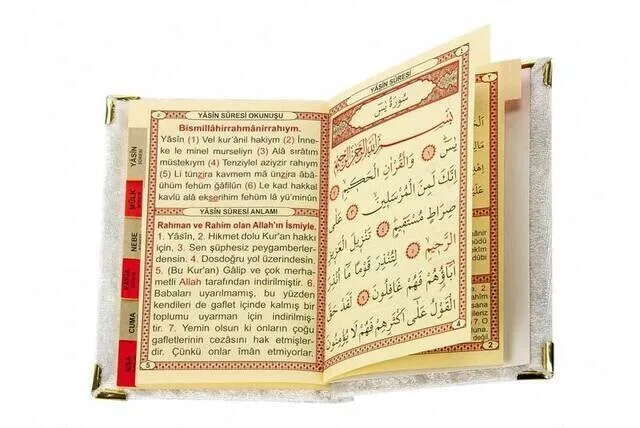 YÂSÎN SÛRESİ OKUNUŞU
Bismillâhirrahmânirrahıym.
Yâsîn (1) Vel kur'ânil hakiym (2) İnne-
ke le minel murseliyn (3) Alâ sırâtım
müstekıym (4) Tenziylel aziyzir rahıym
(5) Li tünzira kavmem mâ ünzira âbâ-
ühüm fehüm ğâfilûn (6) Le kad hakkal
kavlü alâ ekserihim fehüm lâ yü'minûn
YÂSÎN SÛRESİ ANLAMI
Rahman ve Rahim olan Allah'ın İsmiyle.
1. Yâsîn, 2. Hikmet dolu Kur'an hakkı
için, 3. Sen şüphesiz peygamberler-
densin. 4. Dosdoğru yol üzerindesin.
5. (Bu Kur'an) Gâlip ve çok merha-
metli Allah tarafından indirilmiştir. 6.
Babaları uyarılmamış, bu yüzden
kendileri de gaflet içinde kalmış bir
toplumu uyarman için indirilmiş-
tir. 7. Yemin olsun ki onların çoğu
gafletlerinin cezasını hak etmişler-
dir. Çünkü onlar îman etmiyorlar.
5
YÂSÎN
MÜLK
NEBE
CUMA
YÂSÎN SÛRESİ
سُورَةُ يٰسٓ
بِسْمِ اللّٰهِ الرَّحْمٰنِ الرَّحِيمِ
يٰسٓ ﴿١﴾ وَالْقُرْاٰنِ الْحَكِيمِ ﴿٢﴾
اِنَّكَ لَمِنَ الْمُرْسَلِينَ ﴿٣﴾ عَلٰى
صِرَاطٍ مُسْتَقِيمٍ ﴿٤﴾ تَنْزِيلَ الْعَزِيزِ
الرَّحِيمِ ﴿٥﴾ لِتُنْذِرَ قَوْمًا مَٓا اُنْذِرَ
اٰبَٓاؤُهُمْ فَهُمْ غَافِلُونَ ﴿٦﴾ لَقَدْ حَقَّ
الْقَوْلُ عَلٰٓى اَكْثَرِهِمْ فَهُمْ لَا يُؤْمِنُونَ
4
2